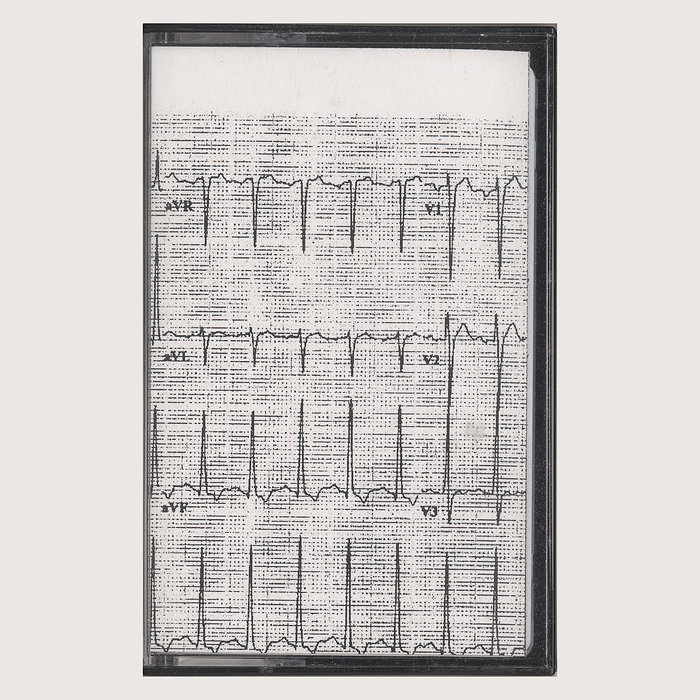 aVR V1
aVL V2
aVF V3